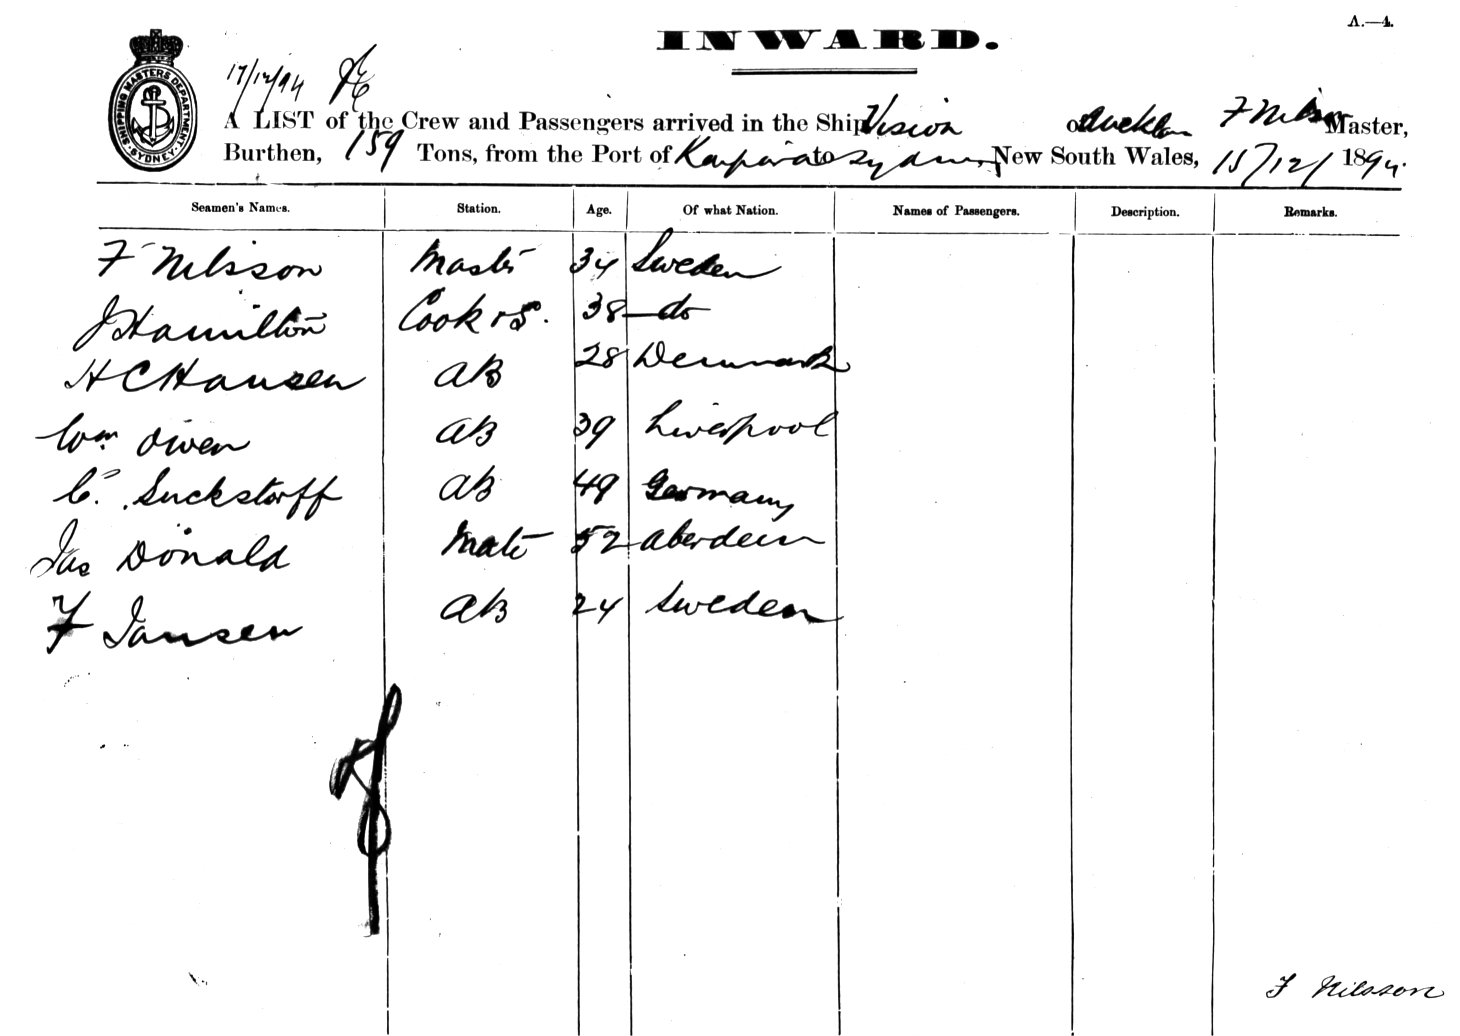 A.—4.
INWARD.
SHIPPING MASTERS DEPARTMENT
SYDNEY
17/12/94
A LIST of the Crew and Passengers arrived in the Ship Vision of Auckland F Nilsson Master,
Burthen, 159 Tons, from the Port of Kaipara to Sydney New South Wales, 15/12/ 1894.
Seamen's Names. Station. Age. Of what Nation. Names of Passengers. Description. Remarks.
F Nilsson Master 34 Sweden
J Hamilton Cook & S. 38 do
H C Hansen AB 28 Denmark
Wm Owen AB 39 Liverpool
C. Suckstorff AB 49 Germany
Jas Donald Mate 52 Aberdeen
F Jansen AB 24 Sweden
F Nilsson